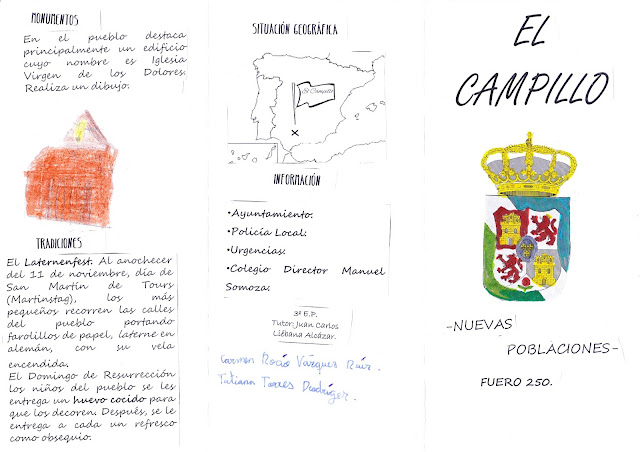 MONUMENTOS
En el pueblo destaca
principalmente un edificio
cuyo nombre es Iglesia
Virgen de los Dolores.
Realiza un dibujo.
TRADICIONES
El Laternenfest. Al anochecer
del 11 de noviembre, día de
San Martín de Tours
(Martinstag), los más
pequeños recorren las calles
del pueblo portando
farolillos de papel, laterne en
alemán, con su vela
encendida.
El Domingo de Resurrección
los niños del pueblo se les
entrega un huevo cocido para
que los decoren. Después, se le
entrega a cada un refresco
como obsequio.
SITUACIÓN GEOGRÁFICA
El Campillo
X
INFORMACIÓN
•Ayuntamiento:
•Policía Local:
•Urgencias:
•Colegio Director Manuel
Somoza:
3º E.P.
Tutor: Juan Carlos
Liébana Alcázar.
Carmen Rocío Vázquez Ruiz.
Tatiana Torres
EL
CAMPILLO
-NUEVAS
POBLACIONES-
FUERO 250.